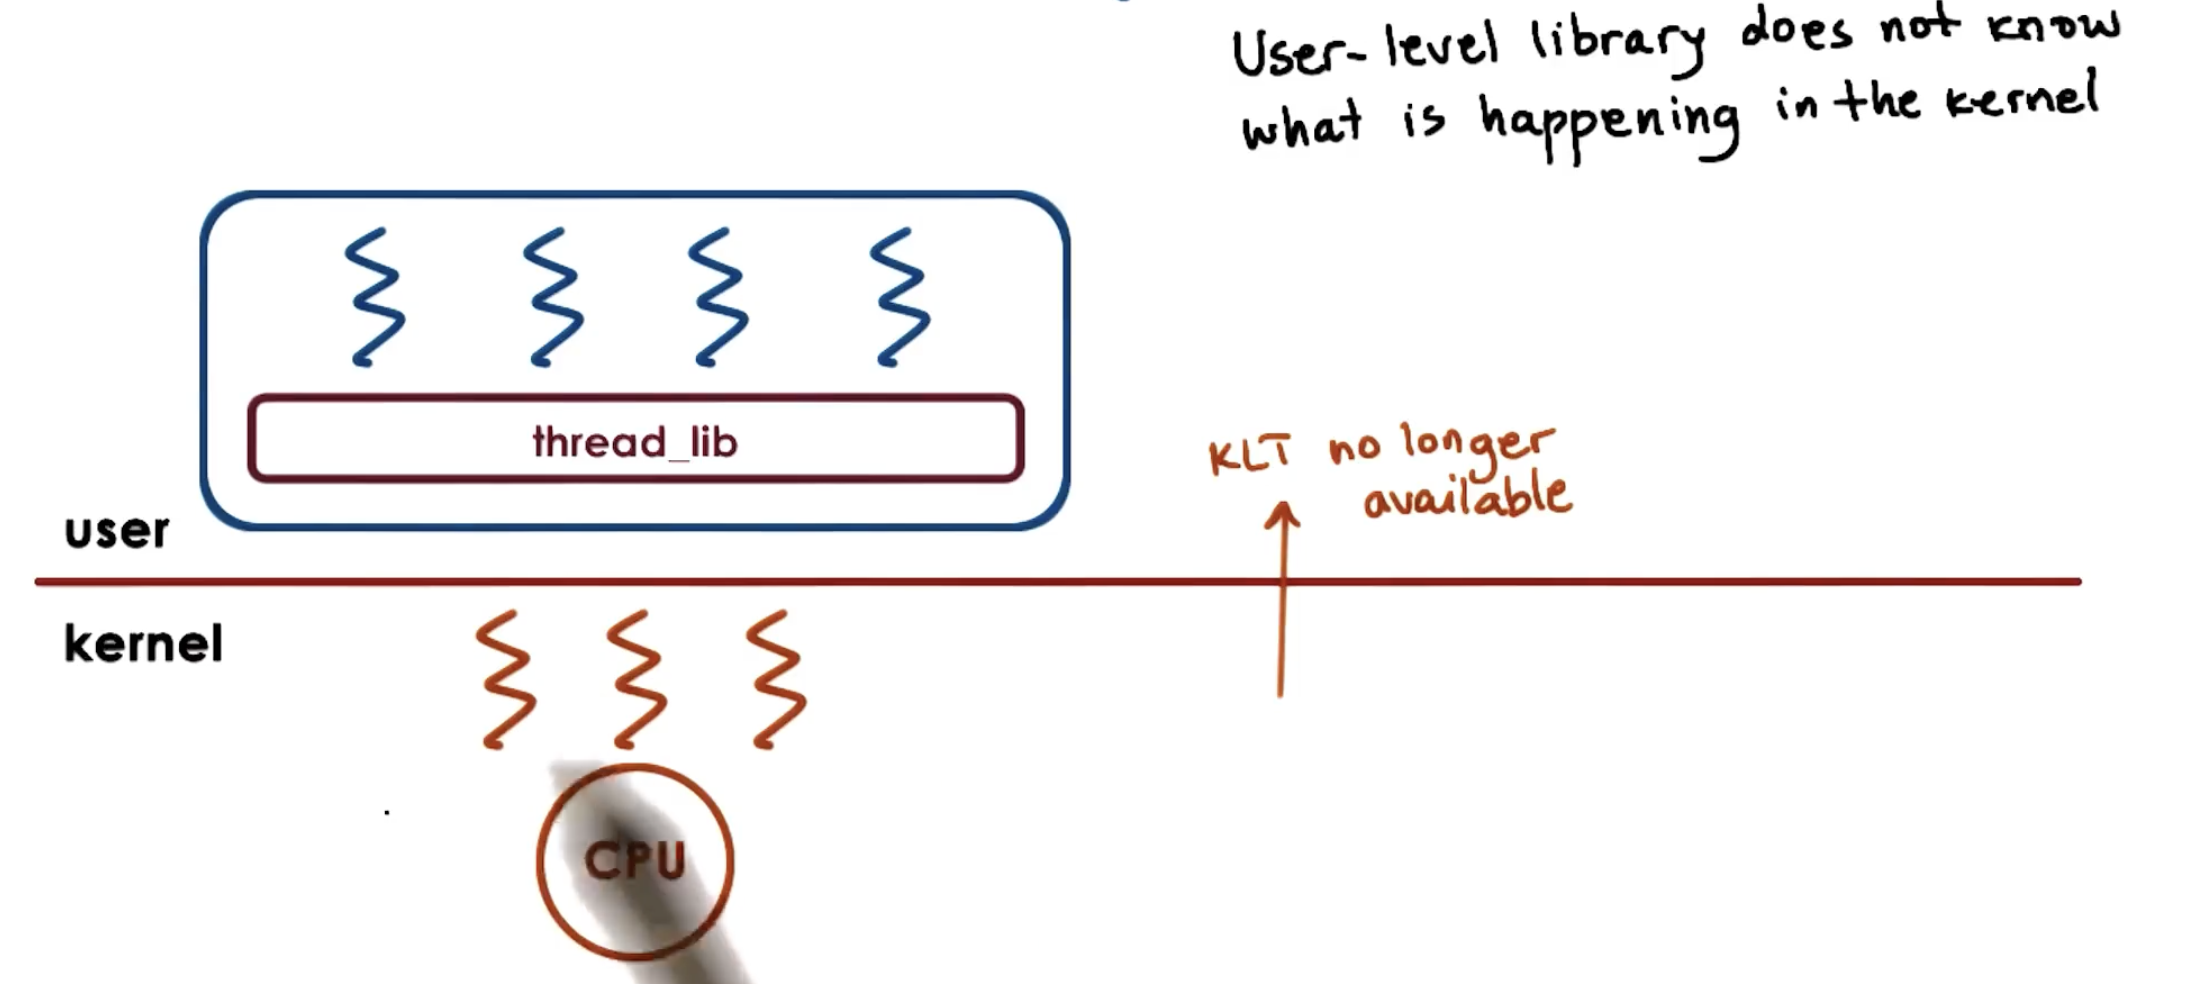 User-level library does not know
what is happening in the kernel
thread_lib
KLT no longer
available
user
kernel
CPU